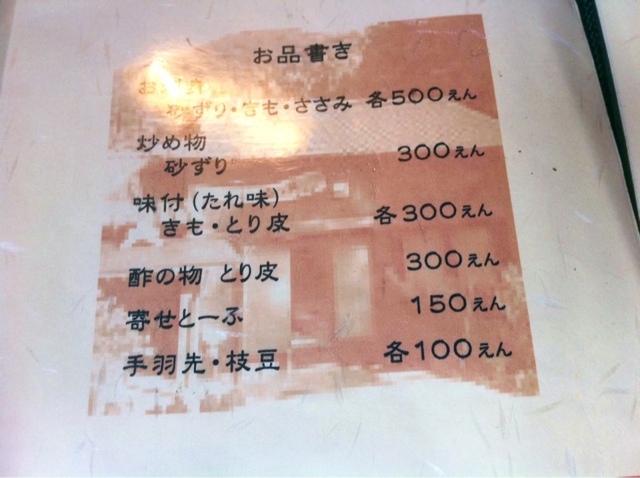 お品書き
お刺身
砂ずり・きも・ささみ 各500えん
炒め物
砂ずり 300えん
味付(たれ味)
きも・とり皮 各300えん
酢の物 とり皮 300えん
寄せとーふ 150えん
手羽先・枝豆 各100えん